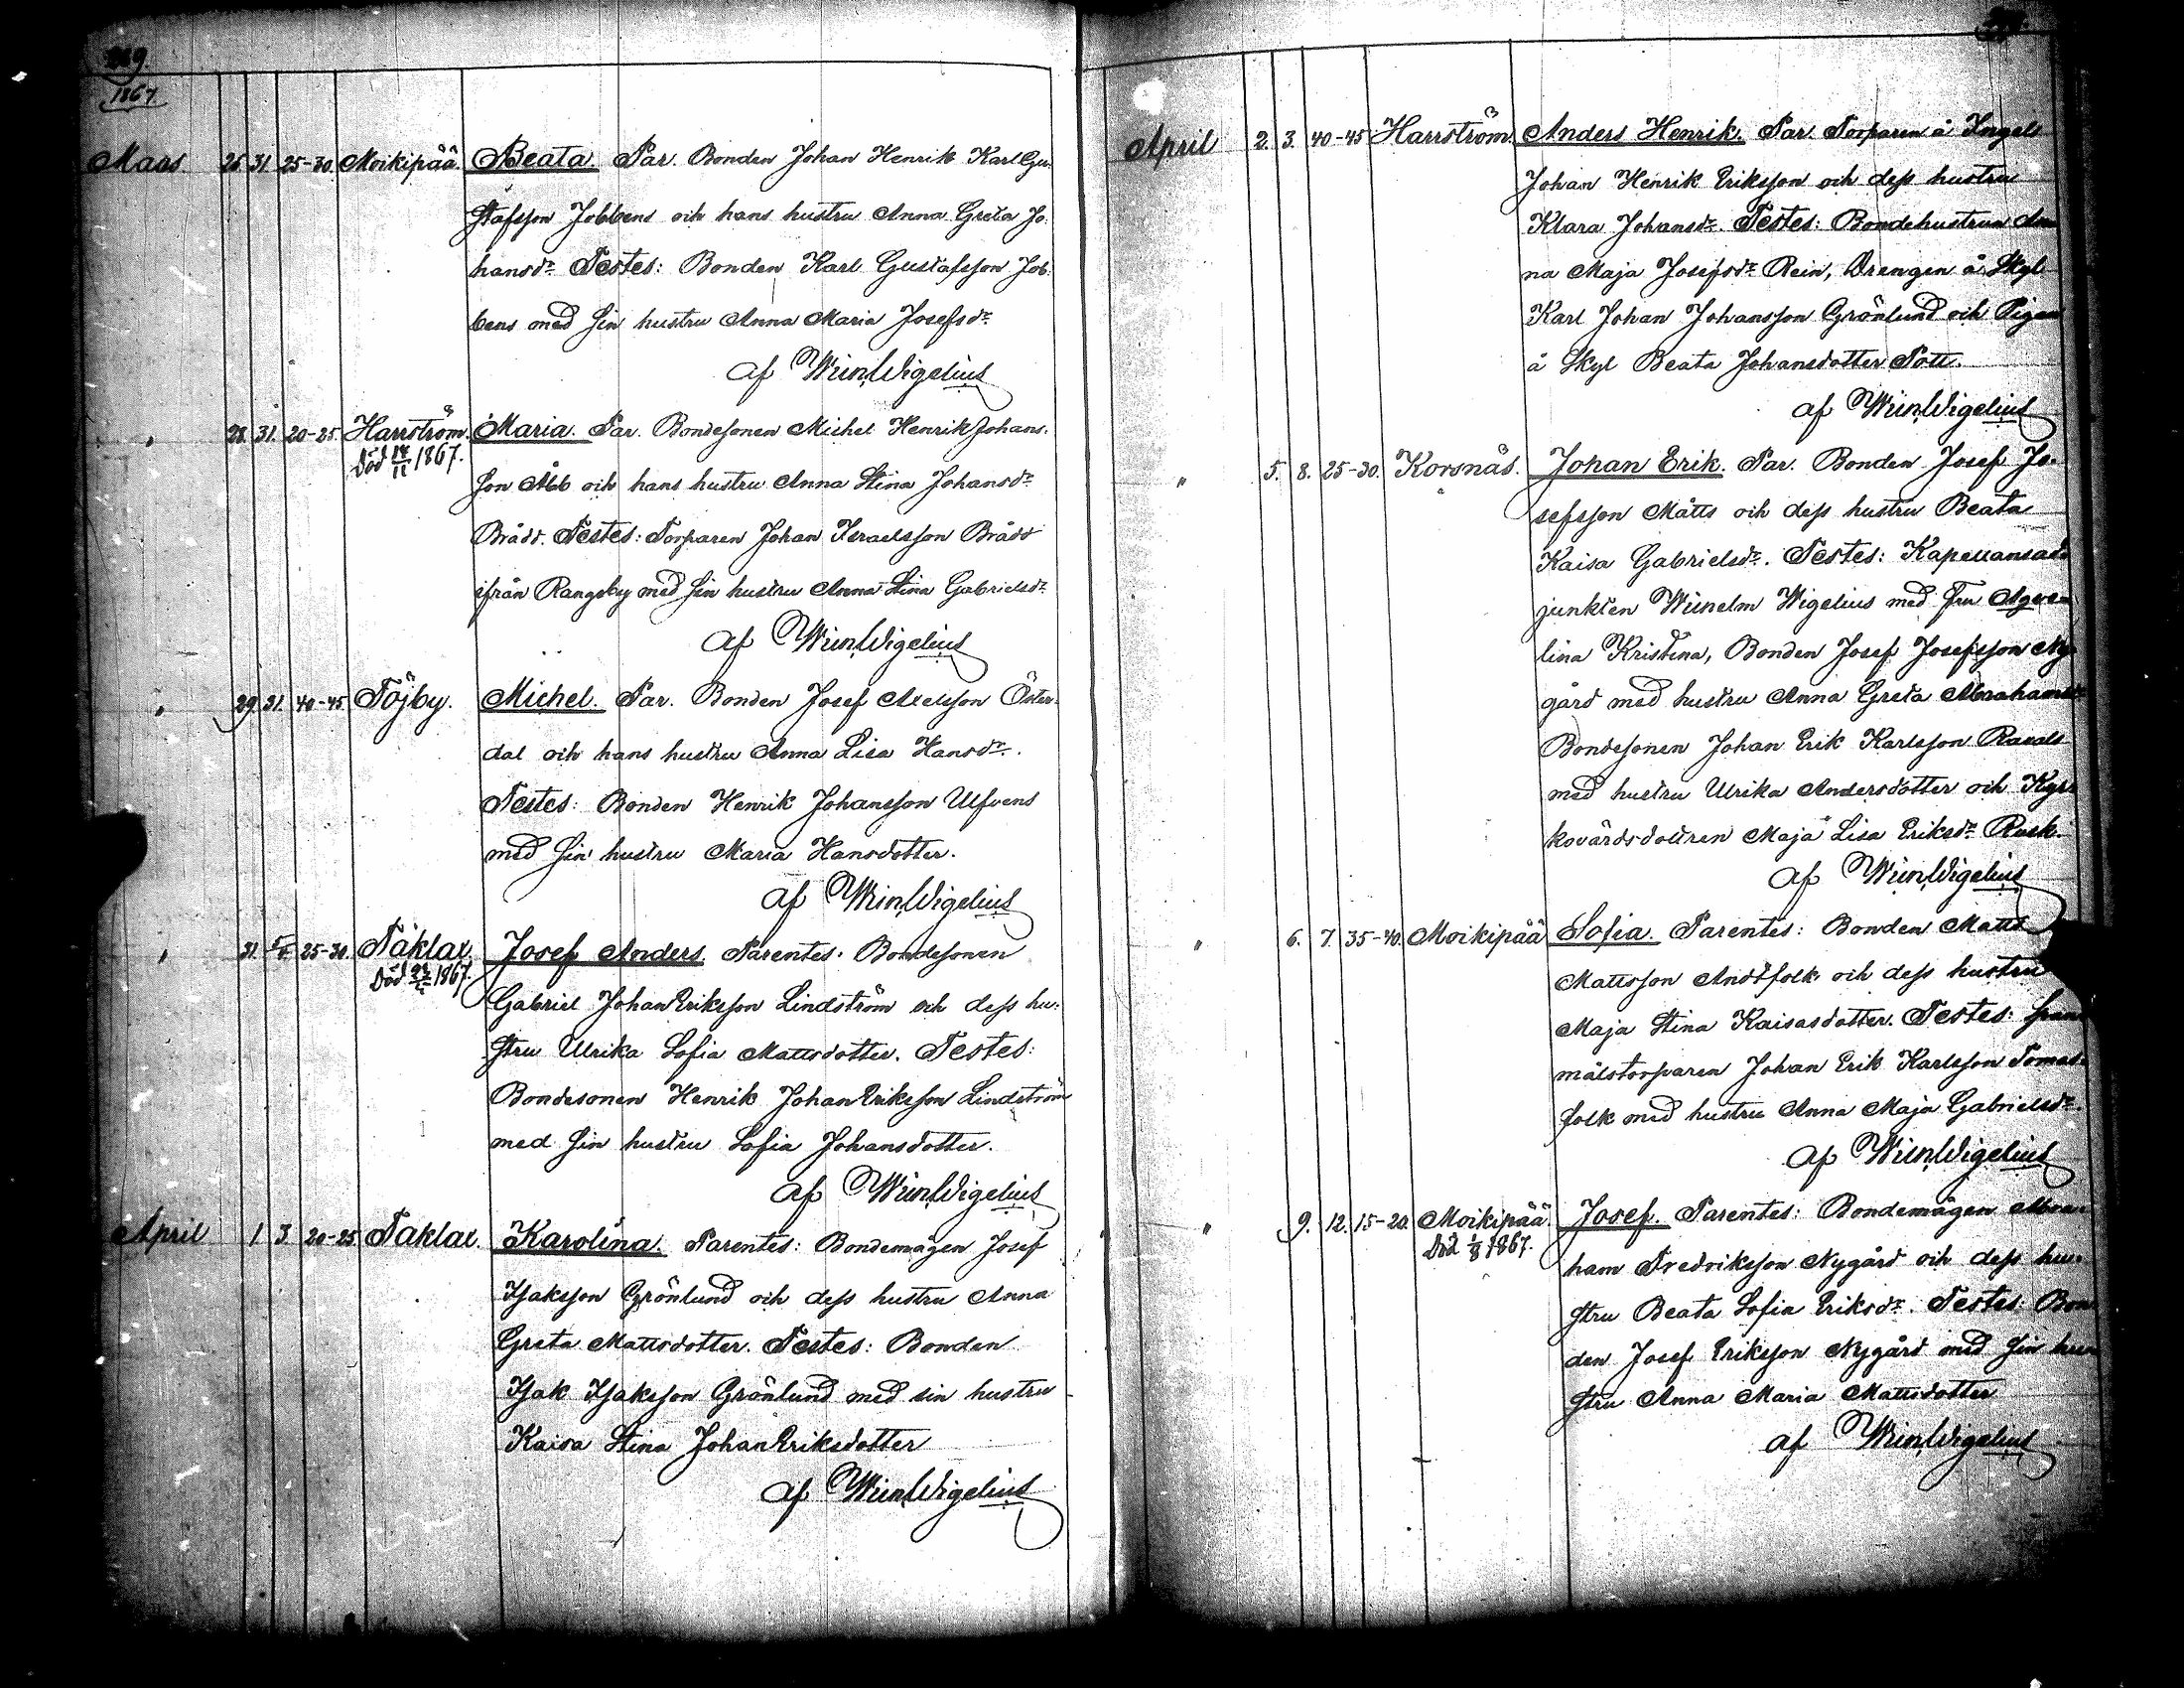 1867
Mars. 26. 31. 25-30. Moikipää. Beata. Par. Bonden Johan Henrik Karl Gu-
stafsson Jobbens och hans hustru Anna Greta Jo-
hansdr. Testes: Bonden Karl Gustafsson Job-
bens med sin hustru Anna Maria Josefsdr.
af Wilh. Wigelius
" 28. 31. 20-25. Harrström. Maria. Par. Bondesonen Michel Henrik Johans-
Död 1867. son Abb och hans hustru Anna Stina Johansdr
Brådd. Testes: Torparen Johan Israelsson Brådd
ifrån Rangsby med sin hustru Anna Stina Gabrielsdr
af Wilh. Wigelius
" 29. 31. 40-45. Töjby. Michel. Par. Bonden Josef Axelsson Öster-
dal och hans hustru Anna Lisa Hansdr.
Testes: Bonden Henrik Johansson Ulfvens
med sin hustru Maria Hansdotter.
af Wilh. Wigelius
" 31. 25-30. Taklax. Josef Anders. Parentes: Bondesonen
Död 1867. Gabriel Johan Eriksson Lindström och dess hu-
stru Ulrika Sofia Mattsdotter. Testes:
Bondesonen Henrik Johan Eriksson Lindström
med sin hustru Sofia Johansdotter.
af Wilh. Wigelius
April 1 3 20-25 Taklax. Karolina. Parentes: Bondemågen Josef
Isaksson Grönlund och dess hustru Anna
Greta Mattsdotter. Testes: Bonden
Isak Isaksson Grönlund med sin hustru
Kaisa Stina Johan Eriksdotter
af Wilh. Wigelius
April 2. 3. 40-45 Harrström. Anders Henrik. Par. Torparen å Ingels
Johan Henrik Eriksson och dess hustru
Klara Johansdr. Testes: Bondehustrun An
na Maja Josefsdr Rein, Drengen å Skyl
Karl Johan Johansson Grönlund och Pigan
å Skyl Beata Johansdotter Pott.
af Wilh. Wigelius
" 5. 8. 25-30. Korsnäs. Johan Erik. Par. Bonden Josef Jo-
sefsson Mätts och dess hustru Beata
Kaisa Gabrielsdr. Testes: Kapellansad
junkten Wilhelm Wigelius med Fru
lina Kristina, Bonden Josef Josefsson Ny
gård med hustru Anna Greta Abrahamsdr
Bondesonen Johan Erik Karlsson
med hustru Ulrika Andersdotter och Kyr
kovärdsdottren Maja Lisa Eriksdr Rusk.
af Wilh. Wigelius
" 6. 7. 35-40. Moikipää Sofia. Parentes: Bonden Matts
Mattsson Andtfolk och dess hustru
Maja Stina Kaisasdotter. Testes:
målstorparen Johan Erik Karlsson Tomas-
folk med hustru Anna Maja Gabrielsdr.
af Wilh. Wigelius
" 9. 12. 15-20. Moikipää. Josef. Parentes: Bondemågen Abra-
Död 1/8 1867. ham Fredriksson Nygård och dess hu-
stru Beata Sofia Eriksdr. Testes: Bon
den Josef Eriksson Nygård med sin hu
stru Anna Maria Mattsdotter
af Wilh. Wigelius